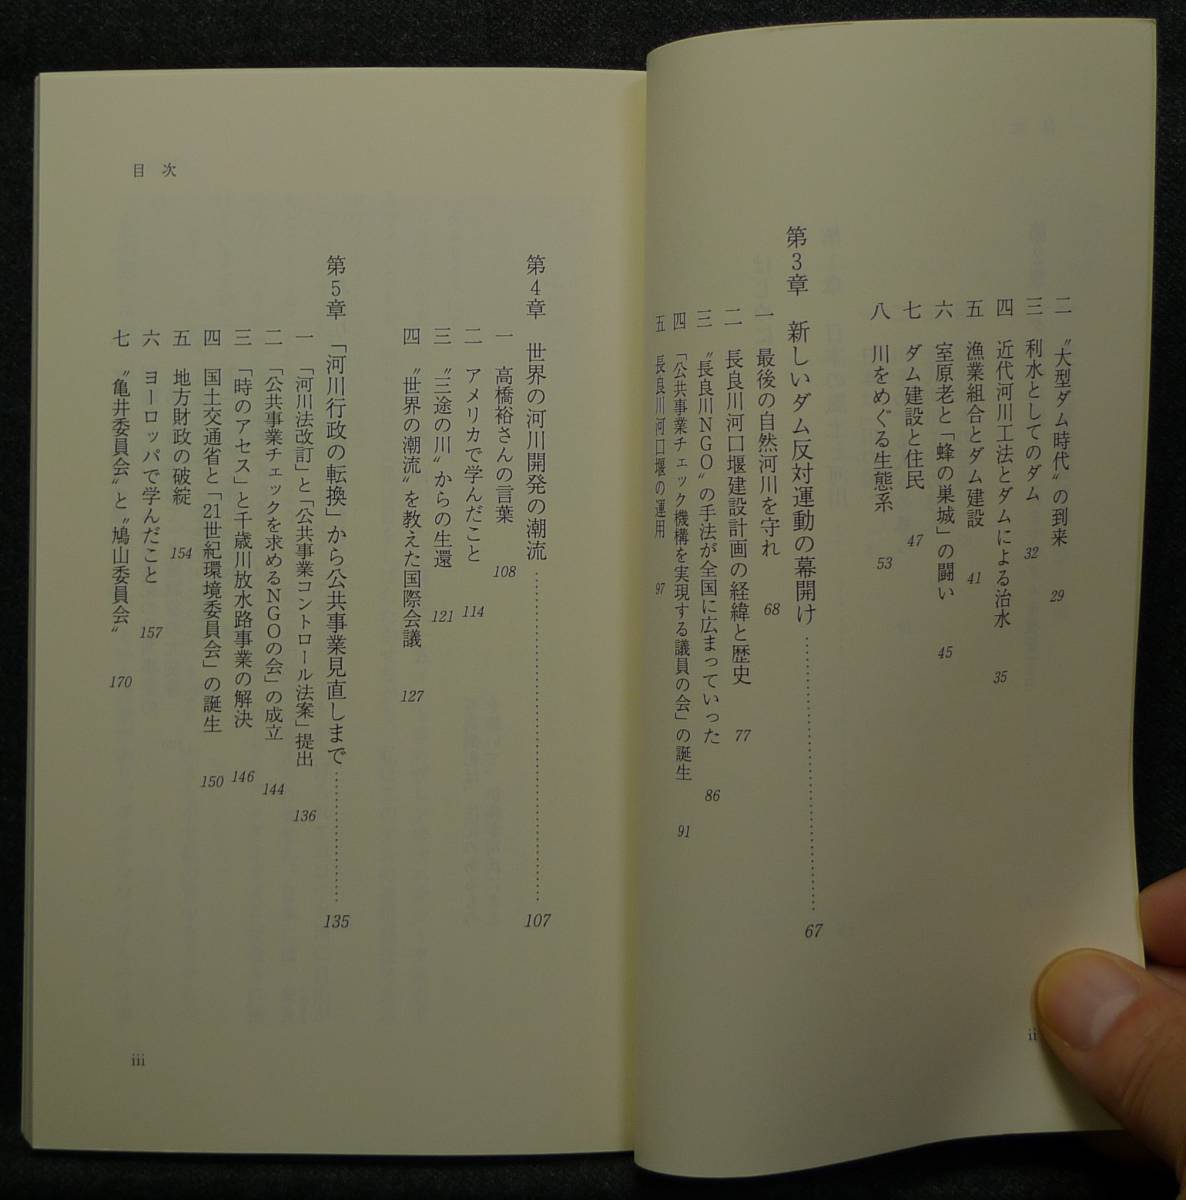 二　〝大型ダム時代〟の到来　29
三　利水としてのダム　32
四　近代河川工法とダムによる治水　35
五　漁業組合とダム建設　41
六　室原老と「蜂の巣城」の闘い　45
七　ダム建設と住民　47
八　川をめぐる生態系　53
第3章　新しいダム反対運動の幕開け……………………67
一　最後の自然河川を守れ　68
二　長良川河口堰建設計画の経緯と歴史　77
三　〝長良川NGO〟の手法が全国に広まっていった　86
四　「公共事業チェック機構を実現する議員の会」の誕生　91
五　長良川河口堰の運用　97
ii
目　次
第4章　世界の河川開発の潮流……………………107
一　高橋裕さんの言葉　108
二　アメリカで学んだこと　114
三　〝三途の川〟からの生還　121
四　〝世界の潮流〟を教えた国際会議　127
第5章　「河川行政の転換」から公共事業見直しまで……………135
一　「河川法改訂」と「公共事業コントロール法案」提出　136
二　「公共事業チェックを求めるNGOの会」の成立　144
三　「時のアセス」と千歳川放水路事業の解決　146
四　国土交通省と「21世紀環境委員会」の誕生　150
五　地方財政の破綻　154
六　ヨーロッパで学んだこと　157
七　〝亀井委員会〟と〝鳩山委員会〟　170
iii